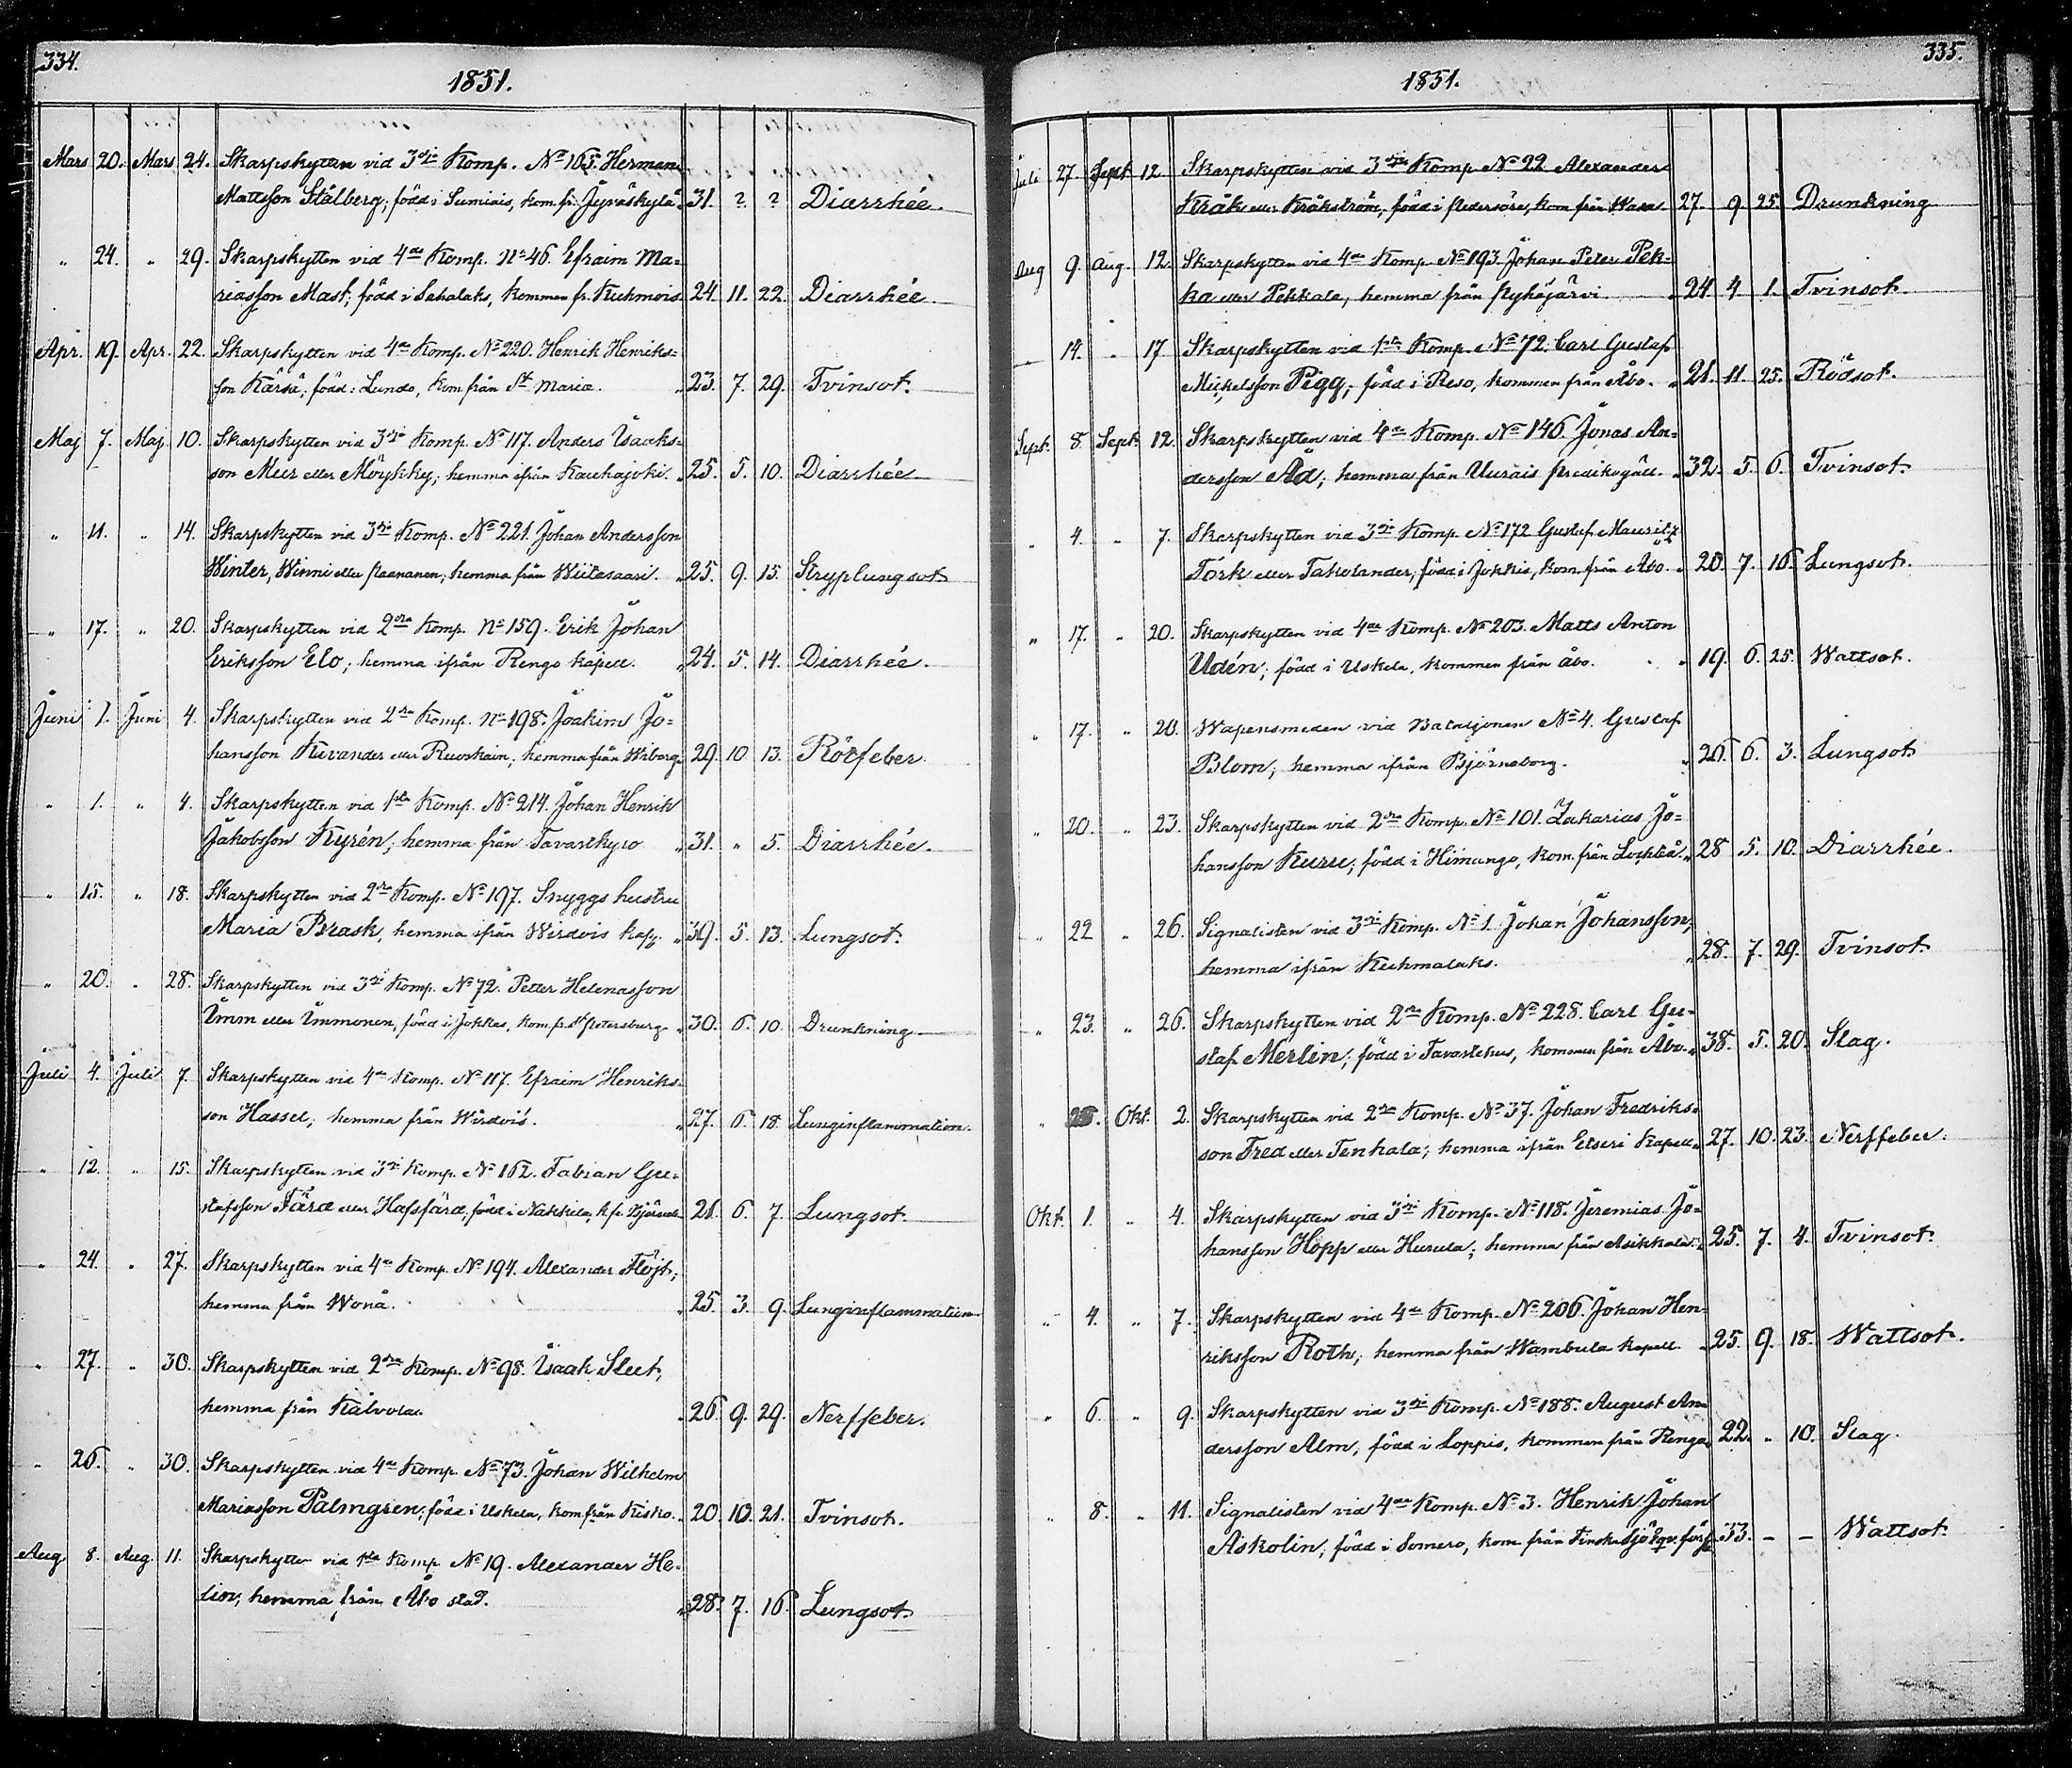 334.
1851.
Mars 20. Mars 24. Skarpskytten vid 3dje Komp. No 165. Herman
Mattsson Stålberg; född i Sumiais, kom. fr. Jyväskylä 31. ? ? Diarrhée.
" 24. " 29. Skarpskytten vid 4de Komp. No 46. Efraim Ma=
riasson Mast; född i Sahalaks, kommen fr. Kuhmois 24. 11. 22. Diarrhée.
Apr. 19. Apr. 22. Skarpskytten vid 4de Komp. No 220. Henrik Henriks=
son Kärsä; född i Lundo, kom från St Maria. 23. 7. 29. Tvinsot.
Maj 7. Maj 10. Skarpskytten vid 3dje Komp. No 117. Anders Isaaks=
son Meur eller Möykky; hemma ifrån Kauhajoki. 25. 5. 10. Diarrhée
" 11. " 14. Skarpskytten vid 3dje Komp. No 221. Johan Andersson
Winter, Winni eller Paananen; hemma från Wiitasaari. 25. 9. 15. Stryplungsot
" 17. " 20. Skarpskytten vid 2dra Komp. No 159. Erik Johan
Eriksson Elo; hemma ifrån Rengo kapell. 24. 5. 14. Diarrhée.
Juni 1. Juni 4. Skarpskytten vid 2dra Komp. No 198. Joakim Jo=
hansson Kivander eller Ruoskain; hemma från Wiborg. 29. 10 13. Rötfeber.
" 1. " 4. Skarpskytten vid 1sta Komp. No 214. Johan Henrik
Jakobsson Kyrén; hemma från Tavastkyro 31. " 5. Diarrhée.
" 15. " 18. Skarpskytten vid 2dra Komp. No 197. Snyggs hustru
Maria Brask, hemma ifrån Wirdois kap. 39. 5. 13. Lungsot.
" 20. " 28. Skarpskytten vid 3dje Komp. No 72. Petter Helenasson
Imm eller Immonen, född i Jokkas, kom. fr. St Petersburg. 30. 6. 10. Drunkning
Juli 4. Juli 7. Skarpskytten vid 4de Komp. No 117. Efraim Henriks=
son Hassel; hemma från Wirdois. 27. 6. 18. Lunginflammation.
" 12. " 15. Skarpskytten vid 3dje Komp. No 162. Fabian Gu=
stafsson Färd eller Hafsfärd, född i Nakkila, k. fr. Björneb. 21. 6. 7. Lungsot.
" 24. " 27. Skarpskytten vid 4de Komp. No 194. Alexander Flöjt;
hemma från Wonå. 25. 3. 9. Lunginflammation
" 27. " 30. Skarpskytten vid 2dra Komp. No 98. Isaak Slut;
hemma från Kalvola. 26. 9. 29. Nerffeber.
" 26. " 30. Skarpskytten vid 4de Komp. No 73. Johan Wilhelm
Mariasson Palmgren; född i Uskela, kom från Kisko. 20. 10. 21. Tvinsot.
Aug. 8. Aug. 11. Skarpskytten vid 1sta Komp. No 19. Alexander He=
lin; hemma från Åbo stad. 28. 7. 16. Lungsot
335.
1851.
Juli 27. Sept. 12. Skarpskytten vid 3dje Komp. No 22 Alexander
Kråk eller Kråkström, född i Pedersöre, kom från Wasa. 27. 9 25. Drunkning
Aug 9. Aug. 12. Skarpskytten vid 4de Komp. No 193. Johan Peter Pek=
ka eller Pekkala, hemma från Pyhäjärvi. 24. 4. 1. Tvinsot.
" 14. " 17. Skarpskytten vid 1sta Komp. No 72. Carl Gustaf
Mickelsson Pigg; född i Reso, kommen från Åbo. 21. 11. 25. Rödsot.
Sept. 8. Sept. 12. Skarpskytten vid 4de Komp. No 146. Jonas An=
dersson Åd; hemma från Uurais Predikogäll. 32. 5. 6. Tvinsot.
" 4. " 7. Skarpskytten vid 3dje Komp. No 172 Gustaf Mauritz
Tork eller Takolander; född i Jokkis, kom från Åbo. 20. 7. 16. Lungsot.
" 17. " 20. Skarpskytten vid 4de Komp. No 203. Matts Anton
Udén; född i Uskela, kommen från Åbo. 19. 6. 25. Wattsot.
" 17. " 20. Wapensmeden vid Bataljonen No 4. Gustaf
Blom; hemma ifrån Björneborg. 26. 6. 3. Lungsot
" 20. " 23. Skarpskytten vid 2dra Komp. No 101. Zakarias Jo=
hansson Kuru; född i Himango, kom. från Lochteå. 28 5. 10. Diarrhée.
" 22 " 26. Signalisten vid 3dje Komp. No 1. Johan Johansson;
hemma ifrån Kuhmalaks. 28. 7. 29. Tvinsot
" 23. " 26. Skarpskytten vid 2dra Komp. No 228. Carl Gu=
staf Merlin; född i Tavastehus, kommen från Åbo. 38. 5. 20. Slag.
" Okt. 2. Skarpskytten vid 2dra Komp. No 37. Johan Fredriks=
son Fred eller Tenhala; hemma ifrån Etseri Kapell. 27. 10. 23. Nerffeber.
Okt. 1. " 4. Skarpskytten vid 3dje Komp. No 118. Jeremias Jo=
hansson Hopp eller Hurula; hemma från Asikkala. 25. 7. 4. Tvinsot.
" 4. " 7. Skarpskytten vid 4de Komp. No 206. Johan Hen=
riksson Roth; hemma från Wambula kapell. 25. 9. 18. Wattsot.
" 6. " 9. Skarpskytten vid 3dje Komp. No 188. August An=
dersson Alm, född i Loppis, kommen från Rengo 22. " 10. Slag.
" 8. " 11. Signalisten vid 4de Komp. No 3. Henrik Johan
Askolin; född i Somero, kom från Finska Sjö Eqv. förs. 33. – – Wattsot